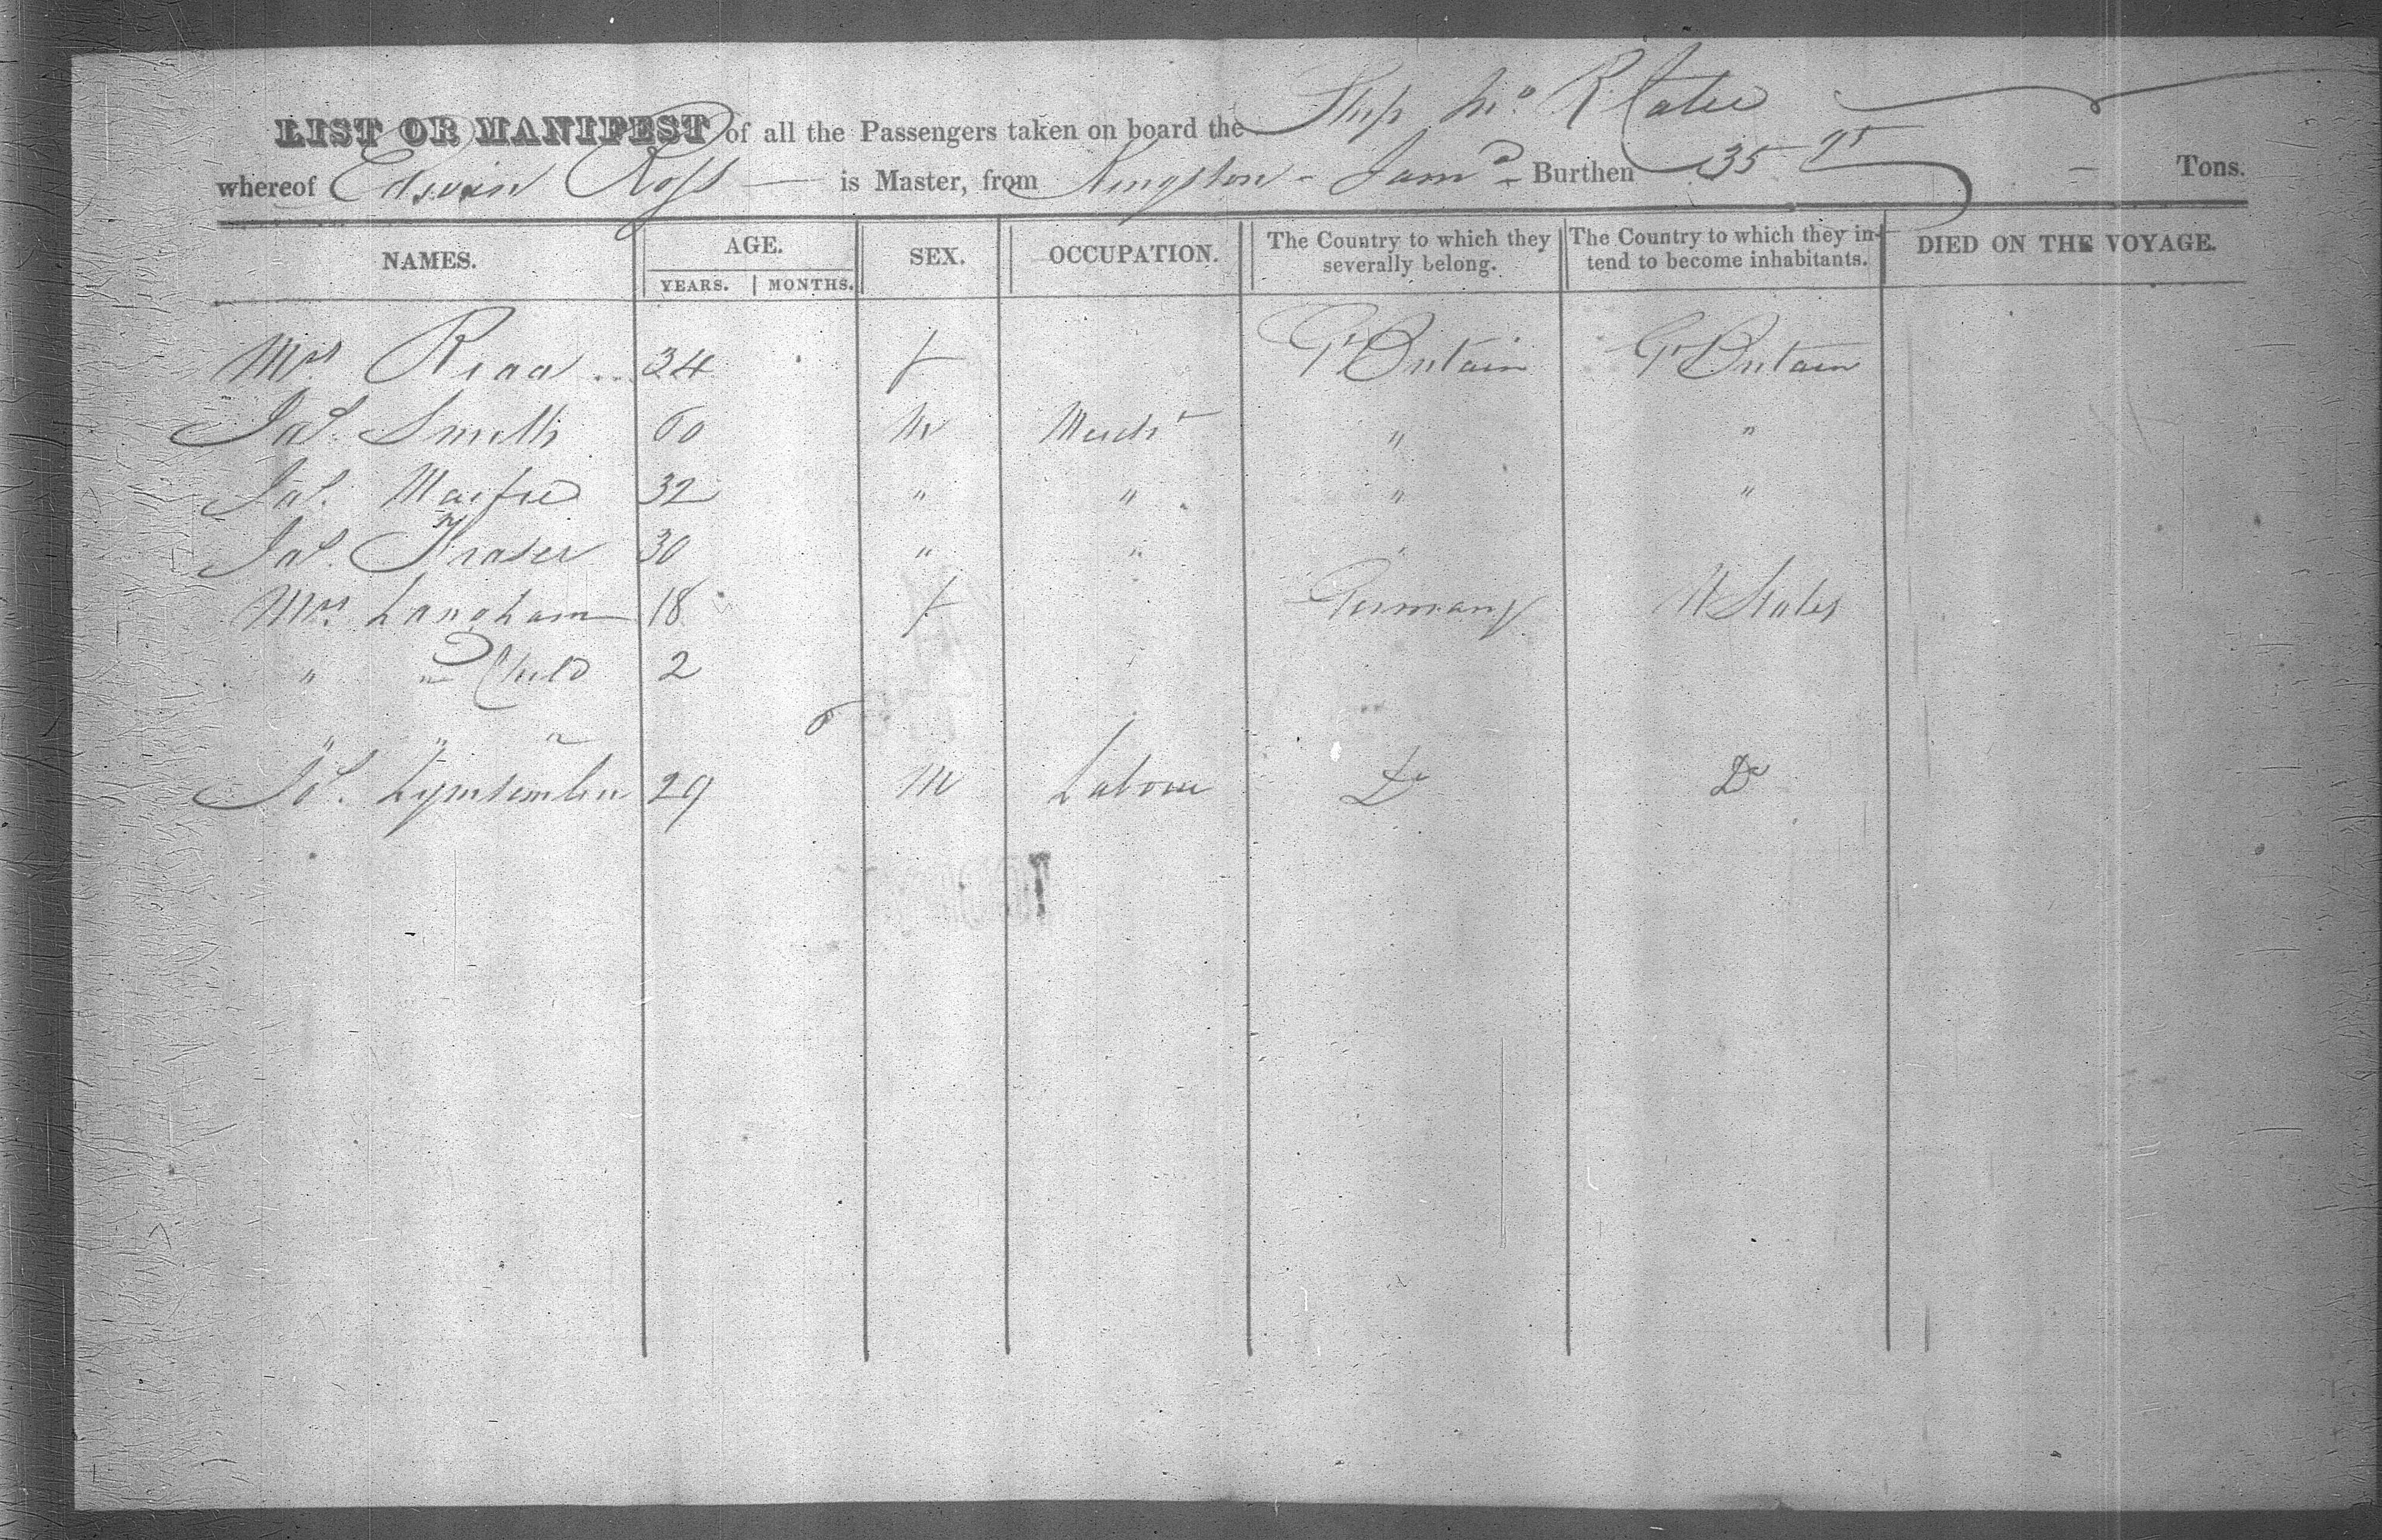 LIST OR MANIFEST of all the Passengers taken on board the Ship
whereof Edwin Ross is Master, from Kingston - Jamª Burthen 135 Tons.
NAMES. AGE. SEX. OCCUPATION. The Country to which they severally belong. The Country to which they intend to become inhabitants. DIED ON THE VOYAGE.
YEARS. MONTHS.
Mrs 34 f Gt Britain Gt Britain
Jas. Smith 60 M Mercht " "
Jas. 32 " " " "
Jas. Fraser 30 " " "
Mrs. Langham 18 f Germany U States
" " Child 2
" " " 6
29 M Labour Do Do